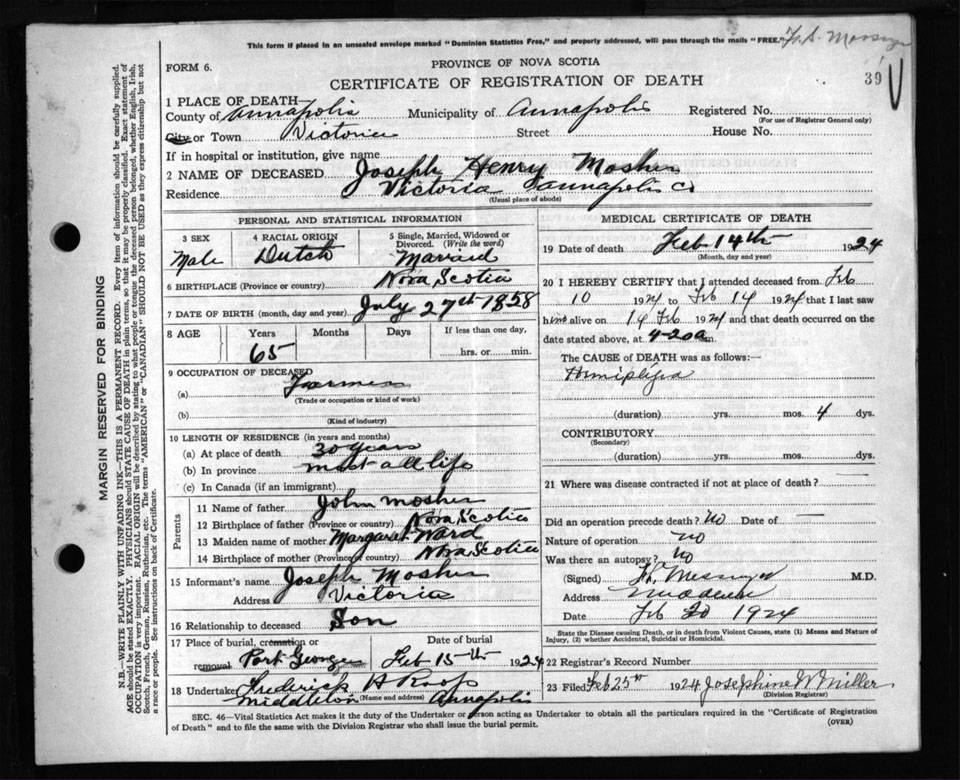 This form if placed in an unsealed envelope marked "Dominion Statistics Free," and properly addressed, will pass through the mails "FREE."
FORM 6.
PROVINCE OF NOVA SCOTIA
39
CERTIFICATE OF REGISTRATION OF DEATH
1 PLACE OF DEATH
County of Annapolis Municipality of Annapolis Registered No.
(For use of Registrar General only)
City or Town Victoria Street House No.
If in hospital or institution, give name
2 NAME OF DECEASED Joseph Henry Mosher
Residence Victoria Annapolis Co
(Usual place of abode)
PERSONAL AND STATISTICAL INFORMATION
3 SEX 4 RACIAL ORIGIN 5 Single, Married, Widowed or
Divorced. (Write the word)
Male Dutch Married
6 BIRTHPLACE (Province or country) Nova Scotia
7 DATE OF BIRTH (month, day and year) July 27th 1858
8 AGE Years Months Days If less than one day,
65 hrs. or min.
9 OCCUPATION OF DECEASED
(a) Farmer
(Trade or occupation or kind of work)
(b)
(Kind of industry)
10 LENGTH OF RESIDENCE (in years and months)
(a) At place of death 30 years
(b) In province most all life
(c) In Canada (if an immigrant)
Parents
11 Name of father John Mosher
12 Birthplace of father (Province or country) Nova Scotia
13 Maiden name of mother Margaret Ward
14 Birthplace of mother (Province or country) Nova Scotia
15 Informant's name Joseph Mosher
Address Victoria
16 Relationship to deceased Son
17 Place of burial, cremation or Date of burial
removal Port George Feb 15th 1924
18 Undertaker Frederick H
Middleton (Name and address) Annapolis
MEDICAL CERTIFICATE OF DEATH
19 Date of death Feb 14th 1924
(Month, day and year)
20 I HEREBY CERTIFY that I attended deceased from Feb
10 1924 to Feb 14 1924 that I last saw
him alive on 14 Feb 1924 and that death occurred on the
date stated above, at 4-20a m.
The CAUSE of DEATH was as follows:—
Hemiplegia
(duration) yrs. mos. 4 dys.
CONTRIBUTORY
(Secondary)
(duration) yrs. mos. dys.
21 Where was disease contracted if not at place of death?
Did an operation precede death? No Date of —
Nature of operation no
Was there an autopsy? No
(Signed) Messenger M.D.
Address Middleton
Date Feb 20 1924
State the Disease causing Death, or in death from Violent Causes, state (1) Means and Nature of
Injury, (2) whether Accidental, Suicidal or Homicidal.
22 Registrar's Record Number
23 Filed Feb 25th 1924 Josephine W Miller
(Division Registrar)
SEC. 46—Vital Statistics Act makes it the duty of the Undertaker or person acting as Undertaker to obtain all the particulars required in the "Certificate of Registration
of Death" and to file the same with the Division Registrar who shall issue the burial permit.
(OVER)
MARGIN RESERVED FOR BINDING
N.B.—WRITE PLAINLY WITH UNFADING INK—THIS IS A PERMANENT RECORD. Every item of information should be carefully supplied.
AGE should be stated EXACTLY. PHYSICIANS should STATE CAUSE OF DEATH in plain terms, so that it may be properly classified. Exact statement of
OCCUPATION is very important. RACIAL ORIGIN will be described by stating to what people or tongue the deceased person belonged, whether English, Irish,
Scotch, French, German, Russian, Ruthenian, etc. The terms "AMERICAN" or "CANADIAN" SHOULD NOT BE USED as they express citizenship but not
a race or people. See instructions on back of Certificate.